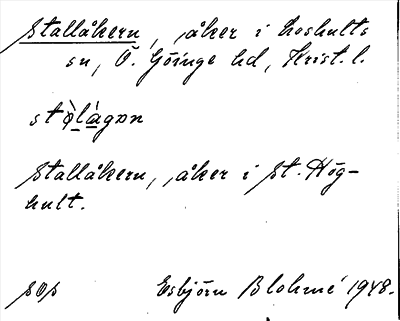 Stallåkern, åker i Loshults
sn, Ö. Göinge hd, Krist. l.
Stallåkern, åker i St. Hög-
hult.
sOs Esbjörn Blohmé 1948.